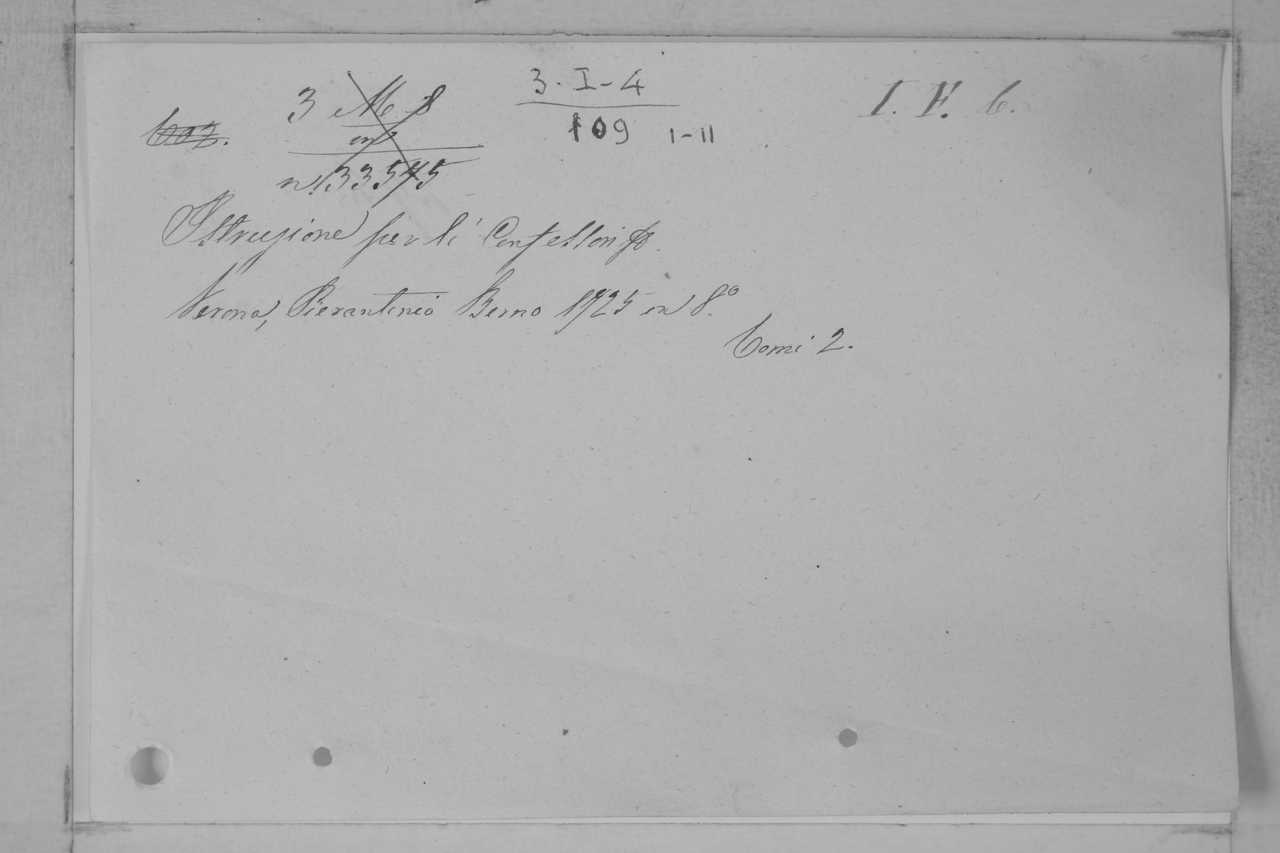 3. I-4
109 I-II
I. F. 6.
3 M 8
in
n. 33575
Istruzione per li Confessori
Verona, Pierantonio Berno 1725 in 8.º
Tomi 2.